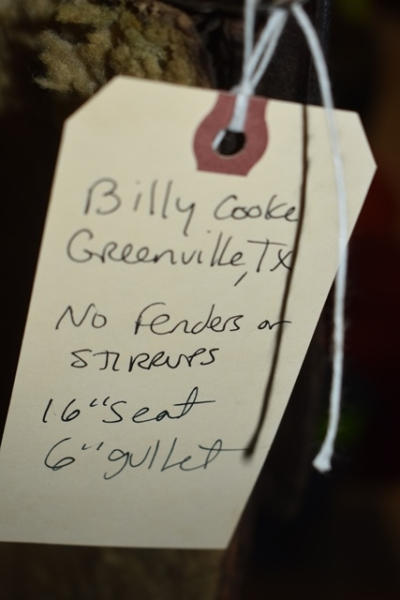 Billy Cooke
Greenville, Tx
No Fenders or
STIRRUPS
16" Seat
6" gullet